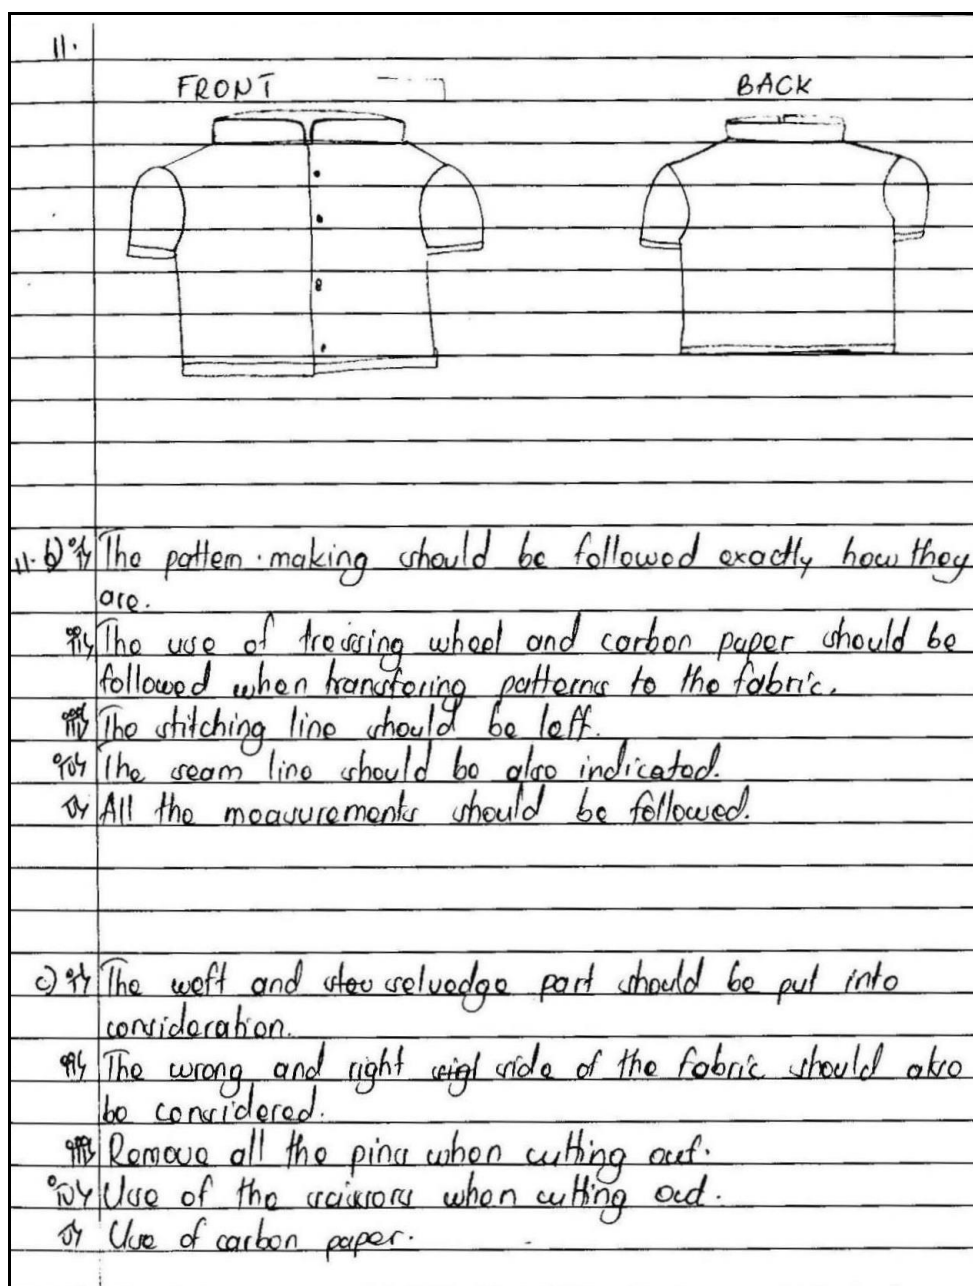 11.
FRONT BACK
11. b) i) The pattern making should be followed exactly how they
are.
ii) The use of treissing wheel and carbon paper should be
followed when transfering patterns to the fabric.
iii) The stitching line should be left.
iv) The seam line should be also indicated.
v) All the measurements should be followed.
c) i) The weft and selvedge part should be put into
consideration.
ii) The wrong and right side of the fabric should also
be considered.
iii) Remove all the pins when cutting out.
iv) Use of the scissors when cutting out.
v) Use of carbon paper.